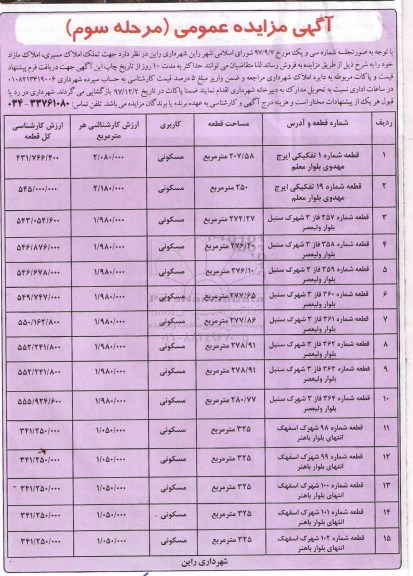 آگهی مزایده عمومی (مرحله سوم)
با توجه به صورتجلسه شماره سی و یک مورخ ۹۷/۹/۷ شورای اسلامی شهر راین شهرداری راین در نظر دارد جهت تملک املاک مسیری، املاک مازاد
خود را به شرح ذیل از طریق مزایده به فروش رساند لذا متقاضیان می توانند حداکثر به مدت ۱۰ روز از تاریخ چاپ این آگهی جهت دریافت فرم پیشنهاد
قیمت و پاکات مربوطه به دایره املاک شهرداری مراجعه و ضمن واریز مبلغ ۵ درصد قیمت کارشناسی به حساب سپرده شهرداری ۰۱۰۸۲۱۳۴۱۹۰۰۶
در ساعات اداری نسبت به تحویل مدارک به دبیرخانه شهرداری اقدام نمایند ضمنا پاکات در تاریخ ۹۷/۱۲/۲ بازگشایی می گردد. شهرداری در رد یا
قبول هر یک از پیشنهادات مختار است و هزینه درج آگهی و کارشناسی به عهده برنده یا برندگان مزایده می باشد. تلفن تماس: ۳۳۷۶۱۰۸۰-۰۳۴
ردیف شماره قطعه و آدرس مساحت قطعه کاربری ارزش کارشناسی هر مترمربع ارزش کارشناسی کل قطعه
۱ قطعه شماره ۱ تفکیکی ایرج مهدوی بلوار معلم ۲۰۷/۵۸ مترمربع مسکونی ۲/۰۸۰/۰۰۰ ۴۳۱/۷۶۶/۴۰۰
۲ قطعه شماره ۱۹ تفکیکی ایرج مهدوی بلوار معلم ۲۵۰ مترمربع مسکونی ۲/۱۸۰/۰۰۰ ۵۴۵/۰۰۰/۰۰۰
۳ قطعه شماره ۲۵۷ فاز ۳ شهرک سنبل بلوار ولیعصر ۲۷۴/۲۷ مترمربع مسکونی ۱/۹۸۰/۰۰۰ ۵۴۳/۰۵۴/۶۰۰
۴ قطعه شماره ۳۵۸ فاز ۳ شهرک سنبل بلوار ولیعصر ۲۷۶/۲۰ مترمربع مسکونی ۱/۹۸۰/۰۰۰ ۵۴۶/۸۷۶/۰۰۰
۵ قطعه شماره ۳۵۹ فاز ۳ شهرک سنبل بلوار ولیعصر ۲۷۶/۱۰ مترمربع مسکونی ۱/۹۸۰/۰۰۰ ۵۴۶/۶۷۸/۰۰۰
۶ قطعه شماره ۳۶۰ فاز ۳ شهرک سنبل بلوار ولیعصر ۲۷۷/۶۵ مترمربع مسکونی ۱/۹۸۰/۰۰۰ ۵۴۹/۷۴۷/۰۰۰
۷ قطعه شماره ۳۶۱ فاز ۳ شهرک سنبل بلوار ولیعصر ۲۷۷/۸۶ مترمربع مسکونی ۱/۹۸۰/۰۰۰ ۵۵۰/۱۶۲/۸۰۰
۸ قطعه شماره ۳۶۲ فاز ۳ شهرک سنبل بلوار ولیعصر ۲۷۸/۹۱ مترمربع مسکونی ۱/۹۸۰/۰۰۰ ۵۵۲/۲۴۱/۸۰۰
۹ قطعه شماره ۳۶۳ فاز ۳ شهرک سنبل بلوار ولیعصر ۲۷۸/۹۱ مترمربع مسکونی ۱/۹۸۰/۰۰۰ ۵۵۲/۲۴۱/۸۰۰
۱۰ قطعه شماره ۳۶۴ فاز ۳ شهرک سنبل بلوار ولیعصر ۲۸۰/۷۷ مترمربع مسکونی ۱/۹۸۰/۰۰۰ ۵۵۵/۹۲۴/۶۰۰
۱۱ قطعه شماره ۹۸ شهرک اسفهک انتهای بلوار باهنر ۳۲۵ مترمربع مسکونی ۱/۰۵۰/۰۰۰ ۳۴۱/۲۵۰/۰۰۰
۱۲ قطعه شماره ۹۹ شهرک اسفهک انتهای بلوار باهنر ۳۲۵ مترمربع مسکونی ۱/۰۵۰/۰۰۰ ۳۴۱/۲۵۰/۰۰۰
۱۳ قطعه شماره ۱۰۰ شهرک اسفهک انتهای بلوار باهنر ۳۲۵ مترمربع مسکونی ۱/۰۵۰/۰۰۰ ۳۴۱/۲۵۰/۰۰۰
۱۴ قطعه شماره ۱۰۱ شهرک اسفهک انتهای بلوار باهنر ۳۲۵ مترمربع مسکونی ۱/۰۵۰/۰۰۰ ۳۴۱/۲۵۰/۰۰۰
۱۵ قطعه شماره ۱۰۲ شهرک اسفهک انتهای بلوار باهنر ۳۲۵ مترمربع مسکونی ۱/۰۵۰/۰۰۰ ۳۴۱/۲۵۰/۰۰۰
شهرداری راین